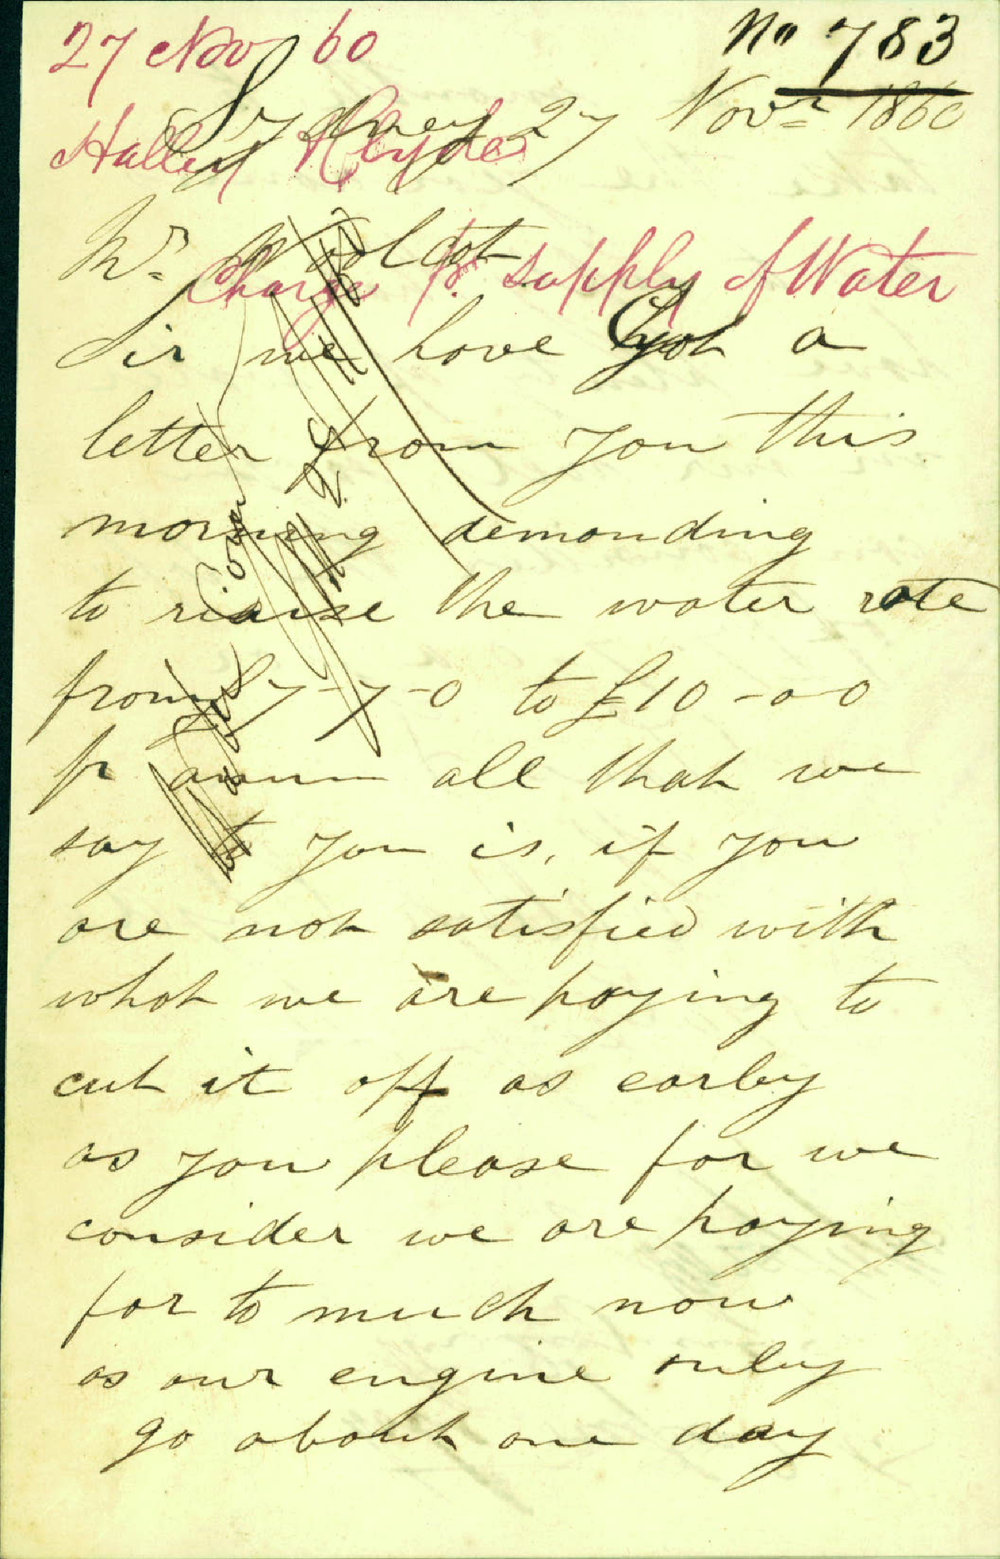 27 Nov 60
No 783
Sydney 27 Novr 1860
Halley & Clyde
Mr Wolcot
Charge for supply of Water
Sir we have Got a
letter from you this
morning demanding
to riaise the water rate
from £7-7-0 to £10-0-0
pr annum all that we
say to you is, if you
are not satisfied with
what we are paying to
cut it off as early
as you please for we
consider we are paying
far to much now
as our engine only
go about one day